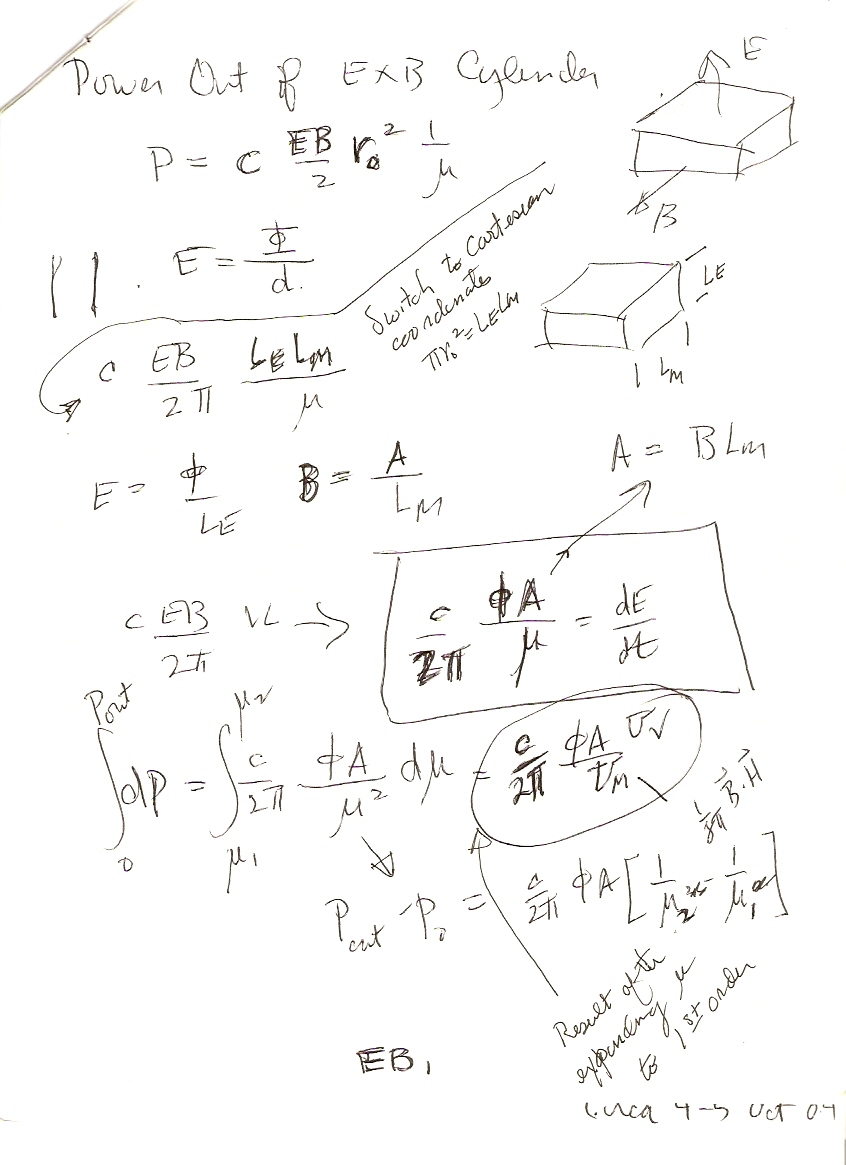 Power Out of E×B Cylinder
E
P = c EB/2 r₀² 1/μ
B
E = Φ/d.
Switch to Cartesian
coordinates
πr₀² = L_E L_M
L_E
L_M
c EB/2π L_E L_M/μ
A = B L_M
E = ϕ/L_E B = A/L_M
c EB/2π → c/2π ϕA/μ = dE/dt
∫₀^Pout dp = ∫_μ₁^μ₂ c/2π ϕA/μ² dμ = c/2π ϕA/U_M U_V
1/8π B⃗·H⃗
P_out - P₀ = c/2π ϕA [1/μ₂ - 1/μ₁]
Result after
expanding μ
to 1st order
EB,
circa 4-5 Oct 04